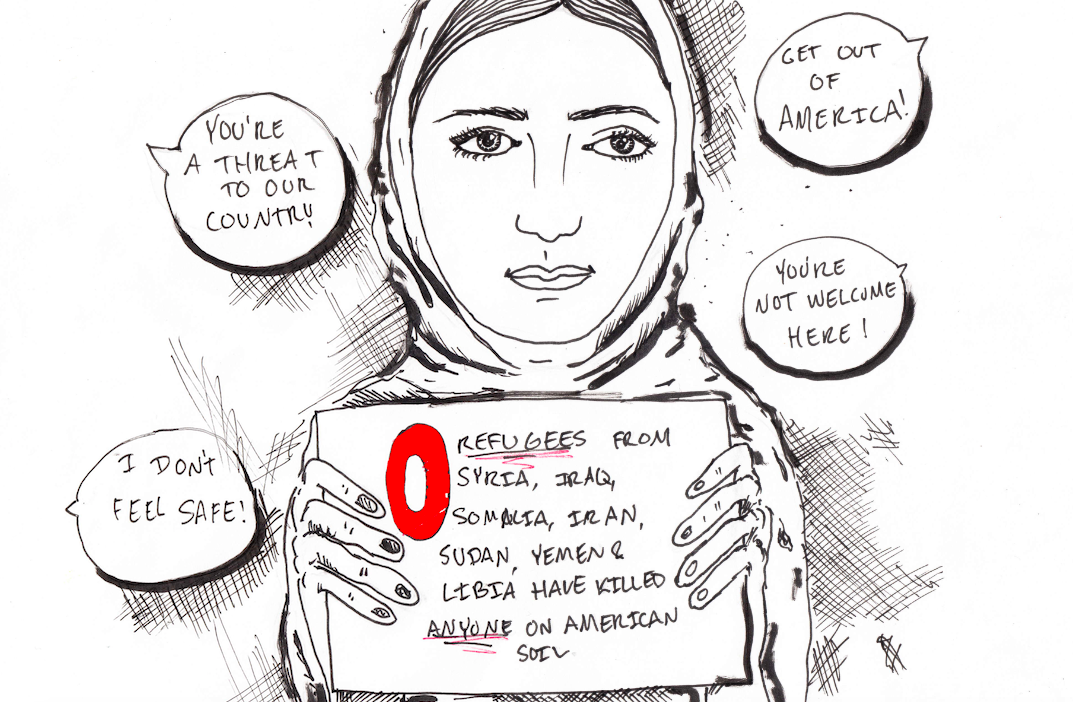 GET OUT
OF
AMERICA!
YOU'RE
A THREAT
TO OUR
COUNTRY!
YOU'RE
NOT WELCOME
HERE!
I DON'T
FEEL SAFE!
0 REFUGEES FROM
SYRIA, IRAQ,
SOMALIA, IRAN,
SUDAN, YEMEN &
LIBIA HAVE KILLED
ANYONE ON AMERICAN
SOIL